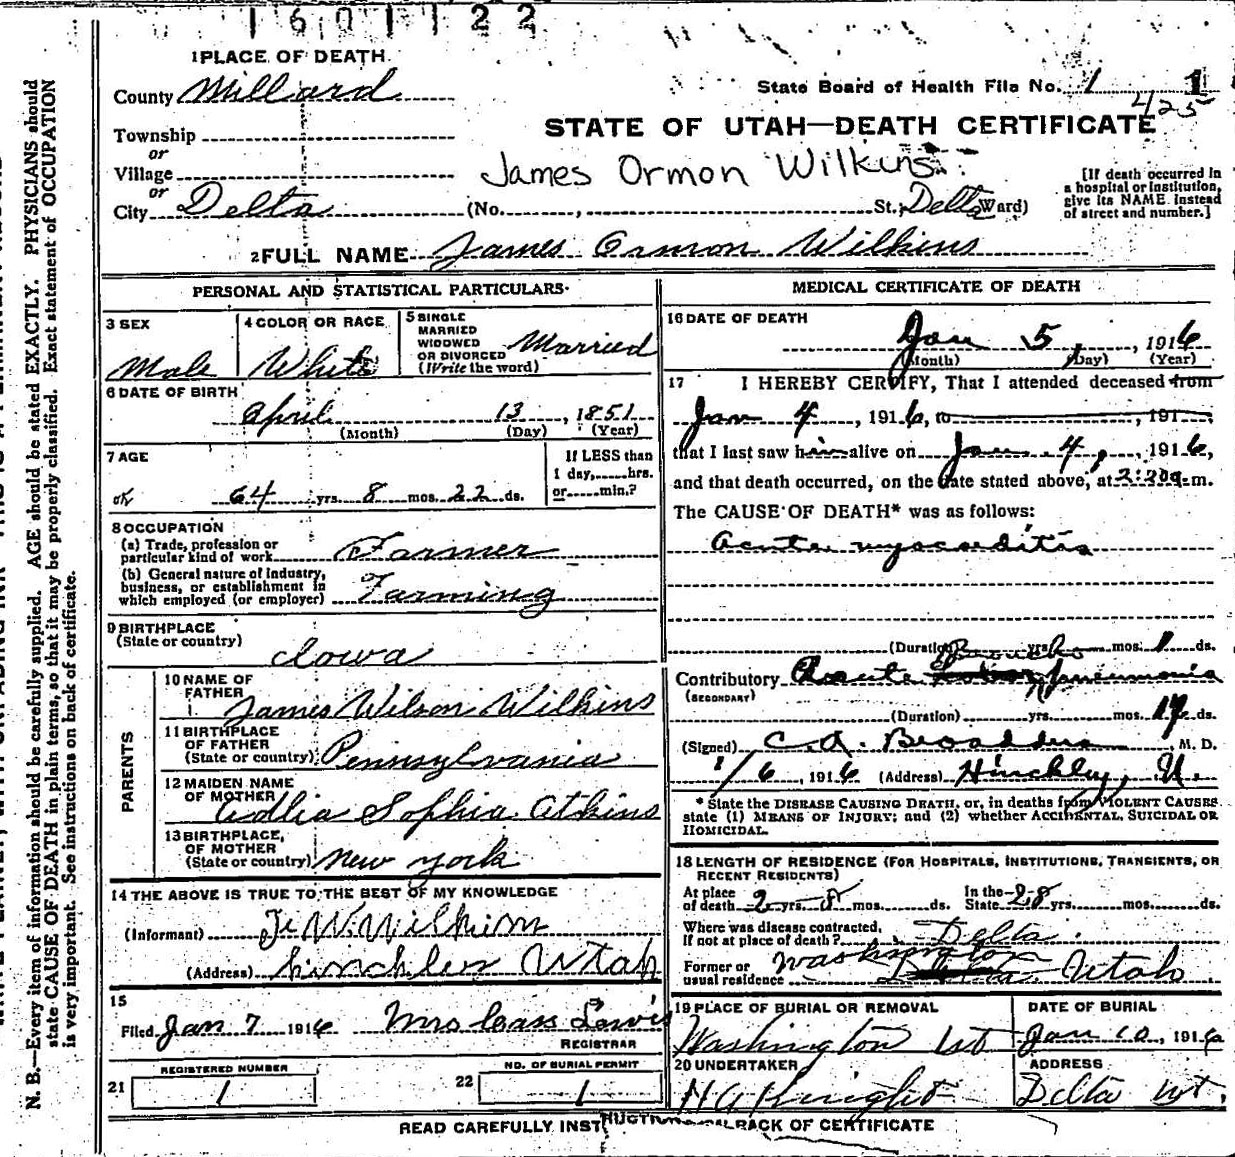 1601122
1 PLACE OF DEATH
County Millard
State Board of Health File No. 1 1
425
Township
or
Village
or
City Delta (No. , St. Delta Ward)
STATE OF UTAH—DEATH CERTIFICATE
James Ormon Wilkins
[If death occurred in
a hospital or institution,
give its NAME instead
of street and number.]
2 FULL NAME James Ormon Wilkins
PERSONAL AND STATISTICAL PARTICULARS
3 SEX
Male
4 COLOR OR RACE
White
5 SINGLE
MARRIED
WIDOWED
OR DIVORCED
(Write the word)
Married
6 DATE OF BIRTH
April 13, 1851
(Month) (Day) (Year)
7 AGE
ok 64 yrs. 8 mos. 22 ds.
If LESS than
1 day, hrs.
or min.?
8 OCCUPATION
(a) Trade, profession or
particular kind of work Farmer
(b) General nature of industry,
business, or establishment in
which employed (or employer) Farming
9 BIRTHPLACE
(State or country)
Iowa
PARENTS
10 NAME OF
FATHER
James Wilson Wilkins
11 BIRTHPLACE
OF FATHER
(State or country) Pennsylvania
12 MAIDEN NAME
OF MOTHER
Sophia Atkins
13 BIRTHPLACE,
OF MOTHER
(State or country) New York
14 THE ABOVE IS TRUE TO THE BEST OF MY KNOWLEDGE
(Informant) J. W. Wilkins
(Address) hinckley Utah
15
Filed Jan 7 1916 Mrs Cass Lewis
REGISTRAR
21 REGISTERED NUMBER
1
22 NO. OF BURIAL PERMIT
1
MEDICAL CERTIFICATE OF DEATH
16 DATE OF DEATH
Jan 5, 1916
(Month) (Day) (Year)
17 I HEREBY CERTIFY, That I attended deceased from
Jan 4, 1916, to , 191
that I last saw him alive on Jan. 4, 1916,
and that death occurred, on the date stated above, at 2:30 a.m.
The CAUSE OF DEATH* was as follows:
Acute myocarditis
(Duration) yrs. mos. 1 ds.
Broncho
Contributory Acute pneumonia
(SECONDARY)
(Duration) yrs. mos. ds.
(Signed) C. A. Broaddus, M. D.
1/6, 1916 (Address) Hinckley, U.
* State the DISEASE CAUSING DEATH, or, in deaths from VIOLENT CAUSES
state (1) MEANS OF INJURY; and (2) whether ACCIDENTAL, SUICIDAL OR
HOMICIDAL.
18 LENGTH OF RESIDENCE (FOR HOSPITALS, INSTITUTIONS, TRANSIENTS, OR
RECENT RESIDENTS)
At place
of death 2 yrs. 8 mos. ds.
In the
State 28 yrs. mos. ds.
Where was disease contracted,
If not at place of death? Delta
Former or
usual residence Washington Utah
19 PLACE OF BURIAL OR REMOVAL
Washington Ut
DATE OF BURIAL
Jan 10, 1916
20 UNDERTAKER
H A Knight
ADDRESS
Delta Ut.
READ CAREFULLY INSTRUCTIONS BACK OF CERTIFICATE
N. B.—Every item of information should be carefully supplied. AGE should be stated EXACTLY. PHYSICIANS should
state CAUSE OF DEATH in plain terms, so that it may be properly classified. Exact statement of OCCUPATION
is very important. See instructions on back of certificate.